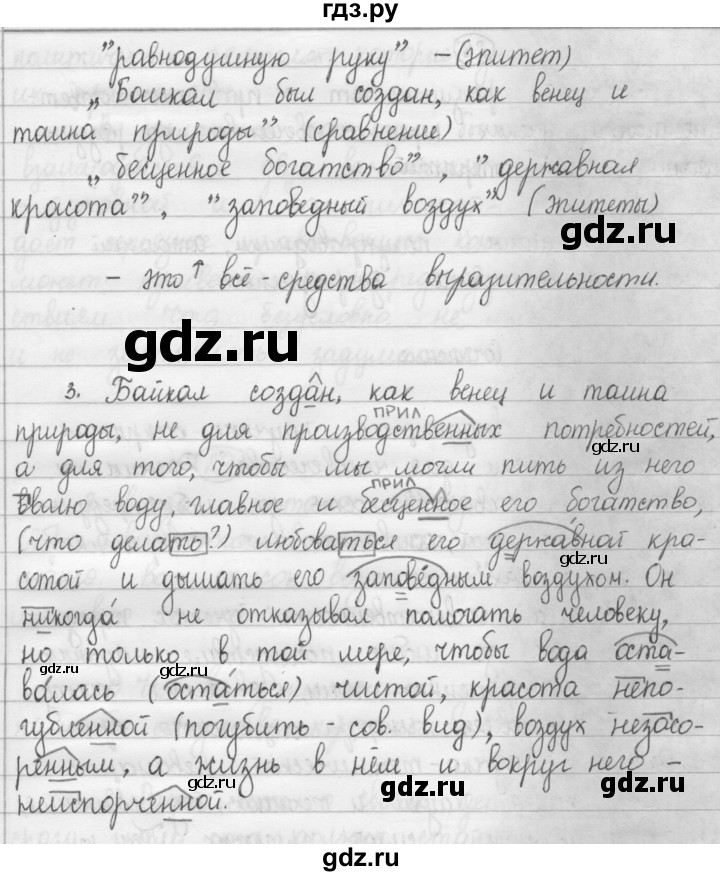 гдз.ру
"равнодушную руку" – (эпитет)
"Байкал был создан, как венец и
тайна природы" (сравнение)
"бесценное богатство", "державная
красота", "заповедный воздух" (эпитеты)
gdz.ru
– это ↑ всё средства выразительности.
gdz.ru
3. Байкал создан, как венец и тайна
ПРИЛ
природы, не для производственных потребностей,
gdz.ru
а для того, чтобы мы могли пить из него
ПРИЛ
воду, главное и бесценное его богатство,
(что делать?) любоваться его державной кра-
gdz.ru
сотой и дышать его заповедным воздухом. Он
никогда не отказывал помогать человеку,
но только в той мере, чтобы вода оста-
gdz.ru
gdz.ru
валась (остаться) чистой, красота непо-
губленной (погубить - сов. вид), воздух незасо-
ренным, а жизнь в нём и вокруг него –
неиспорченной.
gdz.ru
gdz.ru
gdz.ru